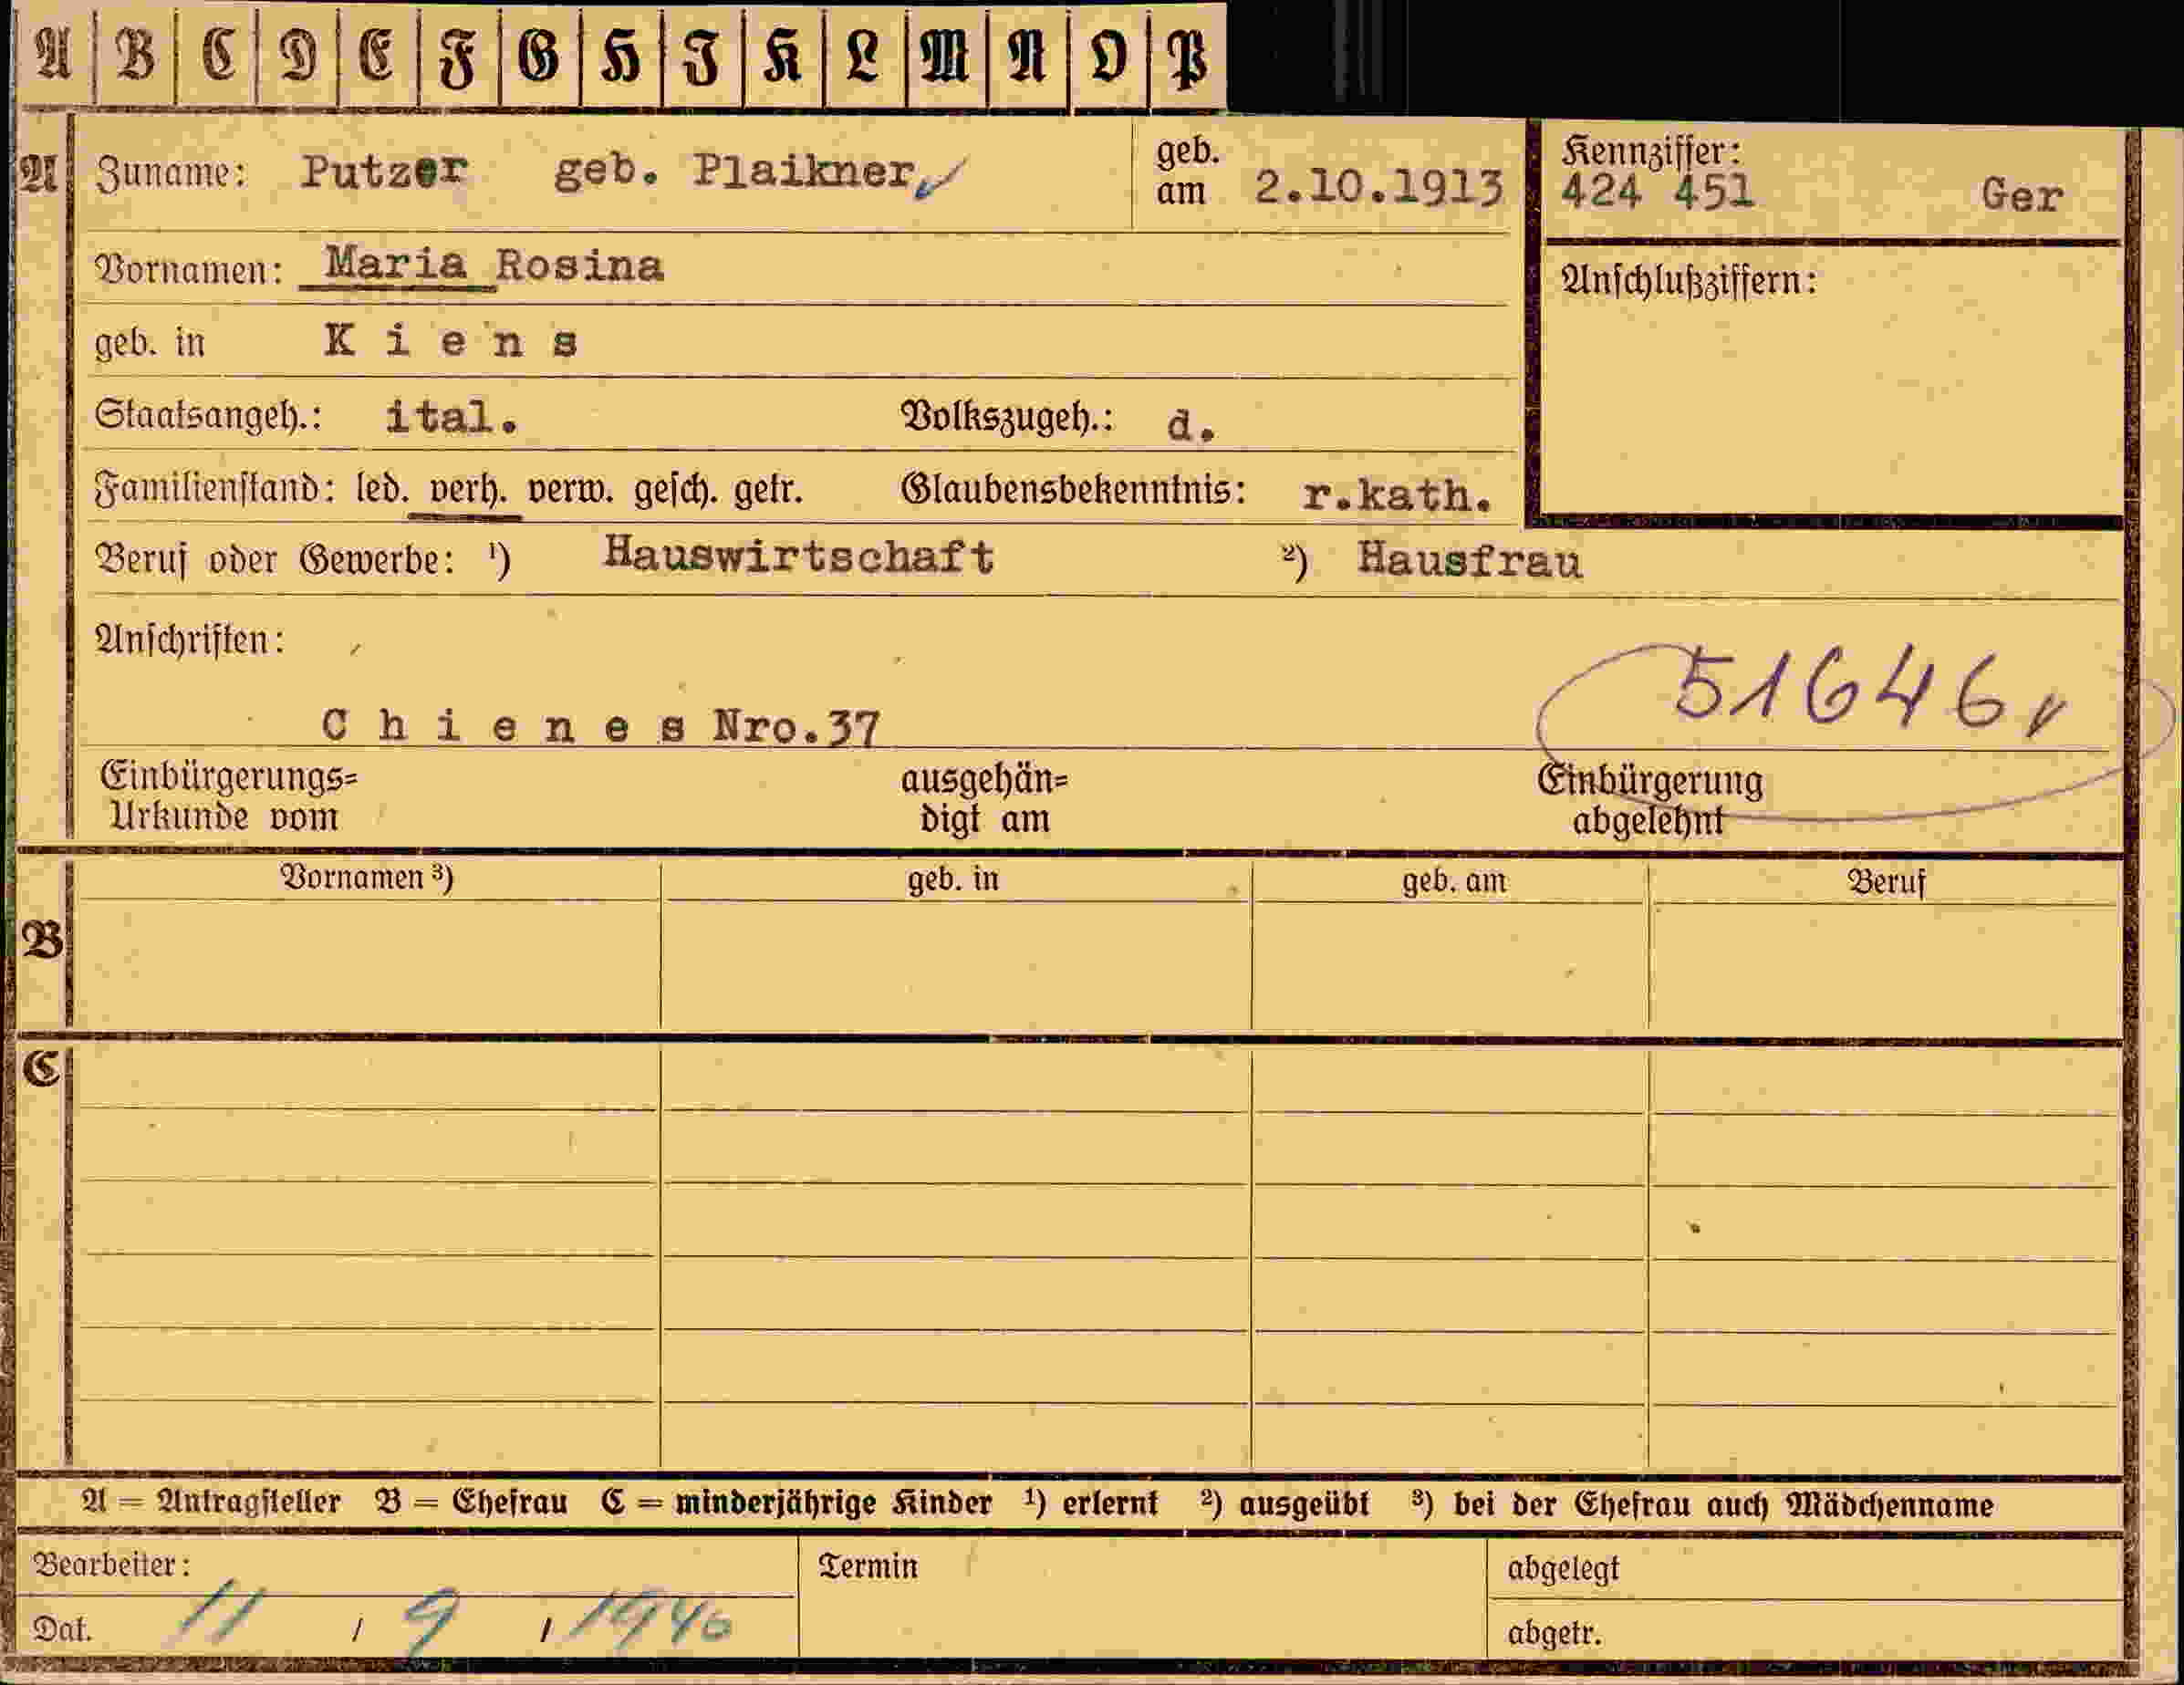 A B C D E F G H I K L M N O P
A Zuname: Putzer geb. Plaikner geb. am 2.10.1913 Kennziffer: 424 451 Ger
Vornamen: Maria Rosina Anschlußziffern:
geb. in Kiens
Staatsangeh.: ital. Volkszugeh.: d.
Familienstand: led. verh. verw. gesch. getr. Glaubensbekenntnis: r.kath.
Beruf oder Gewerbe: ¹) Hauswirtschaft ²) Hausfrau
Anschriften:
51646
Chienes Nro.37
Einbürgerungs= ausgehän= Einbürgerung
Urkunde vom digt am abgelehnt
Vornamen ³) geb. in geb. am Beruf
B
C
A = Antragsteller B = Ehefrau C = minderjährige Kinder ¹) erlernt ²) ausgeübt ³) bei der Ehefrau auch Mädchenname
Bearbeiter: Termin abgelegt
Dat. 11 / 9 / 1940 abgetr.